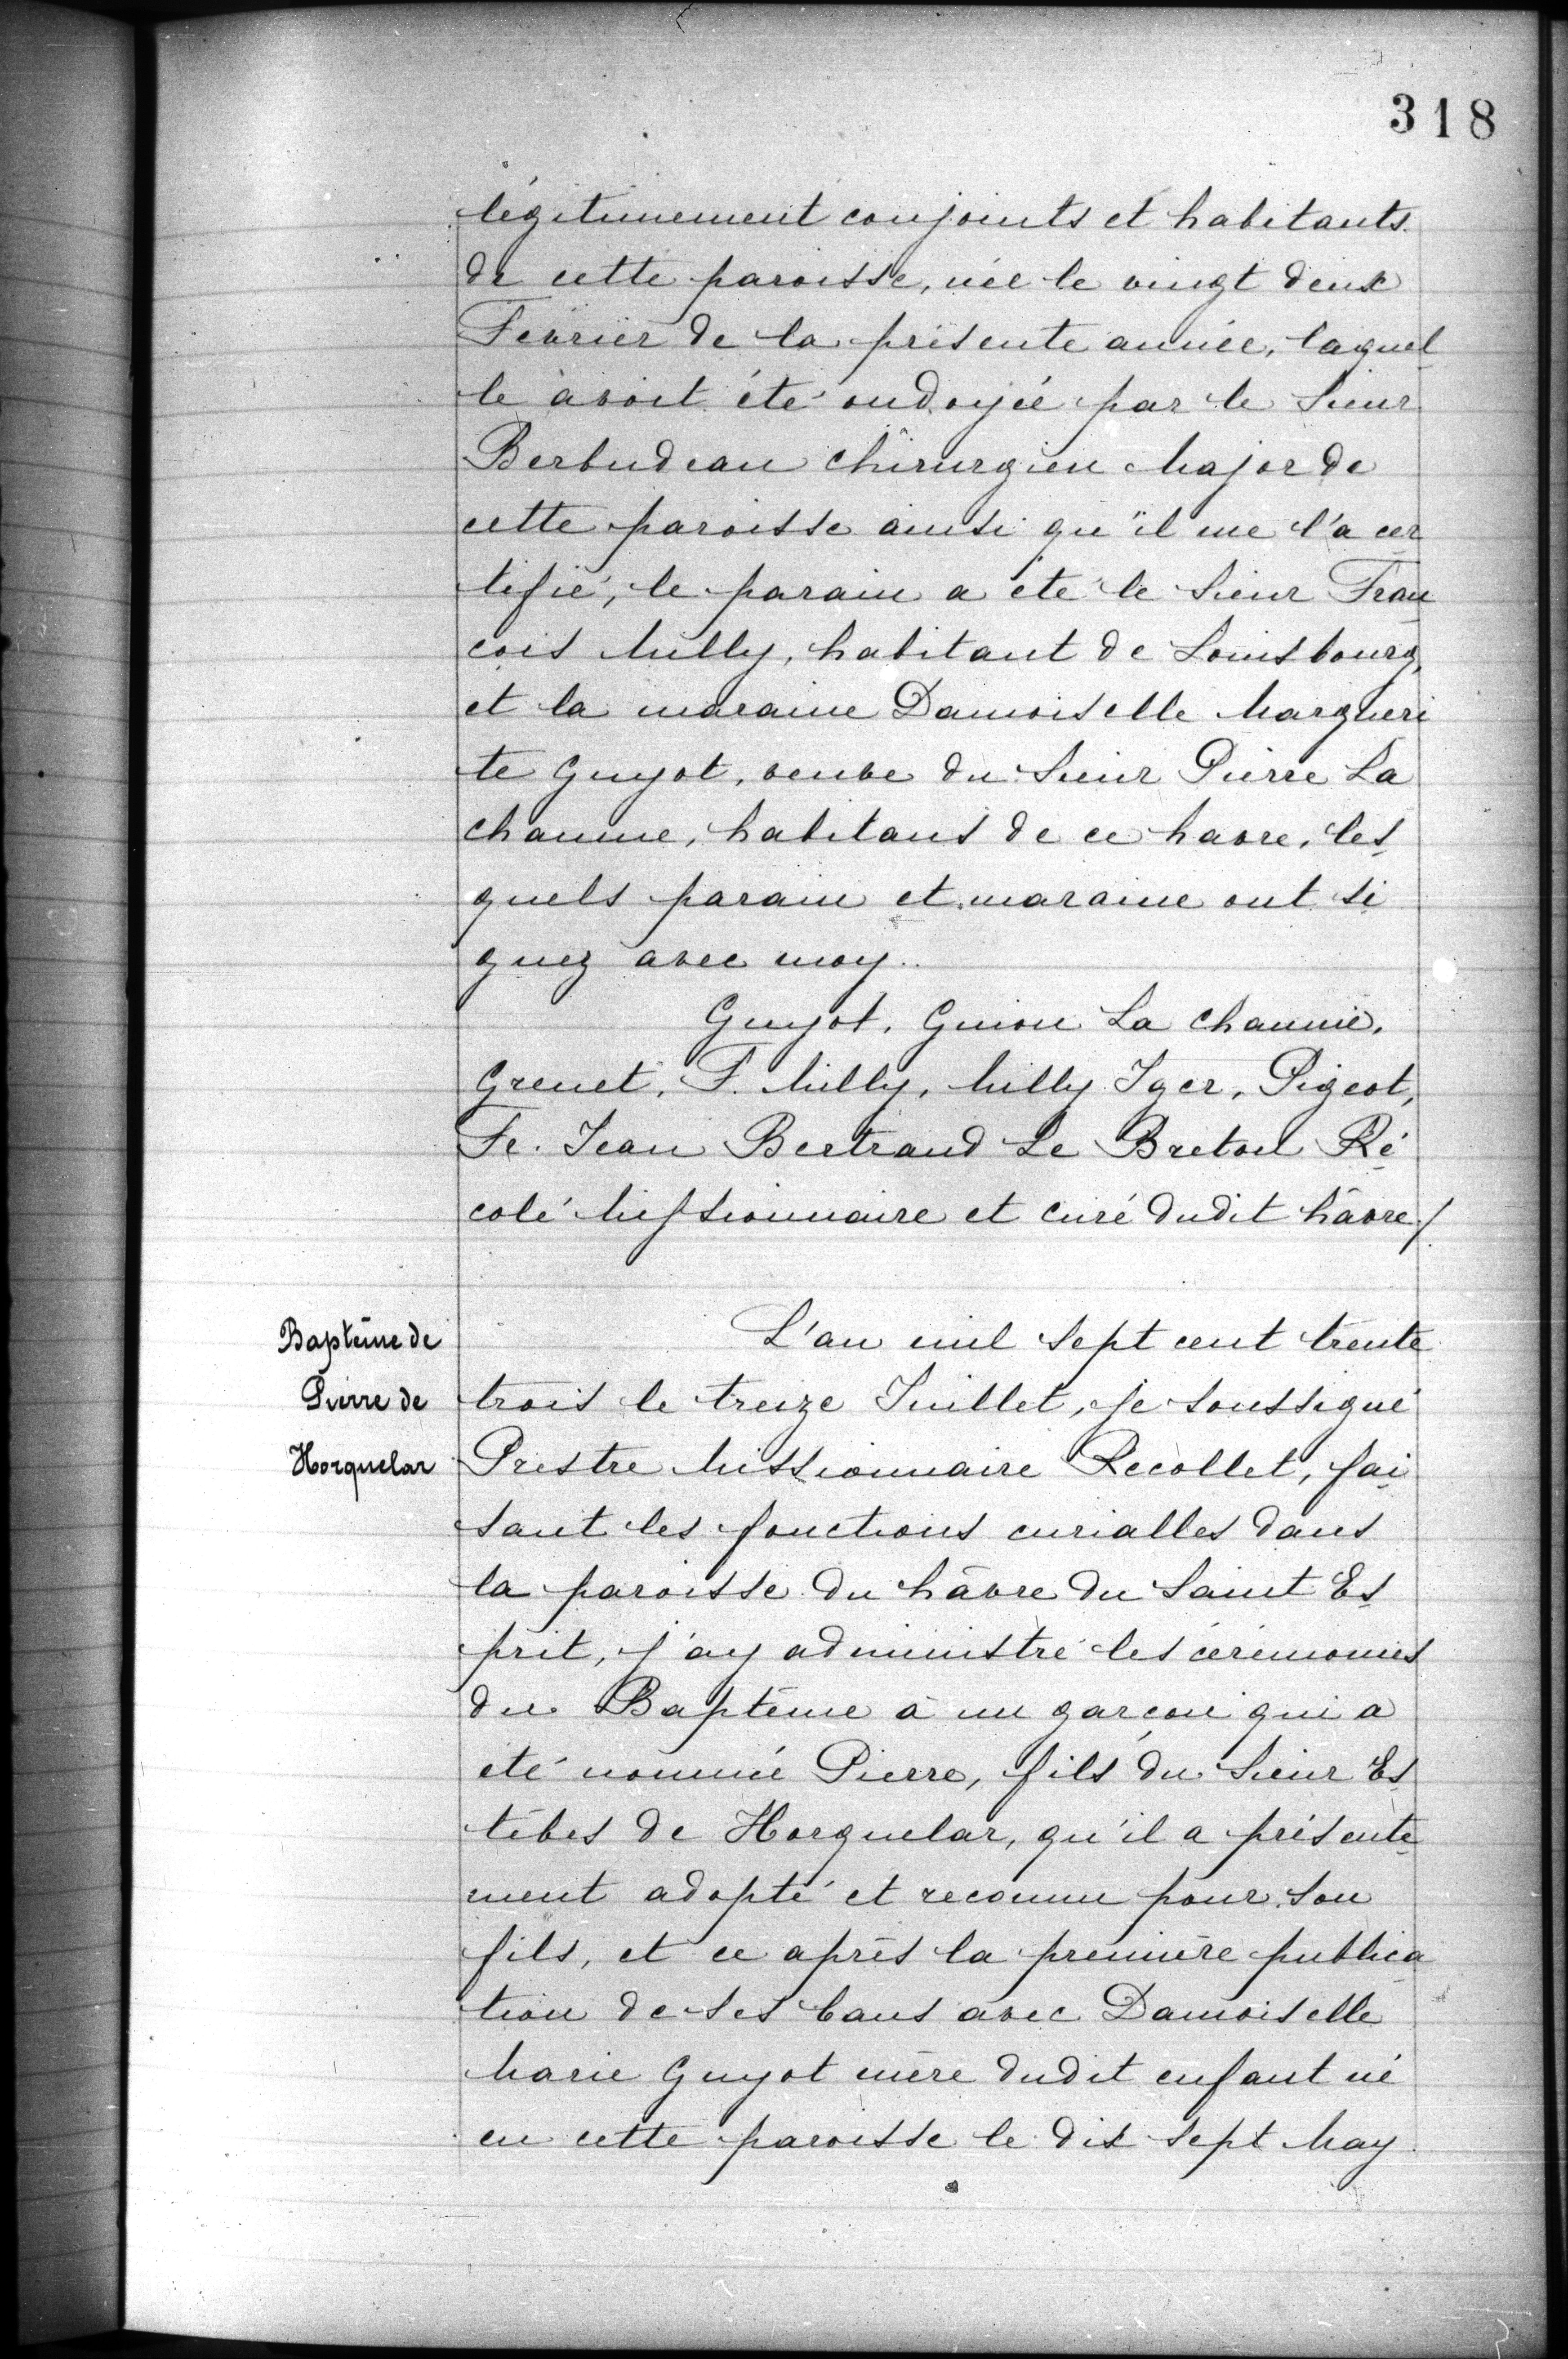 318
légitimement conjoints et habitants
de cette paroisse, née le vingt deux
Février de la présente année, laquel
le avoit été ondoyée par le Sieur
Berbudeau chirurgien Major de
cette paroisse ainsi qu'il me l'a cer
tifié, le parain a été le Sieur Fran
çois Milly, habitant de Louisbourg,
et la maraine Damoiselle Margueri
te Guyot, veuve du Sieur Pierre La
chaume, habitans de ce havre, les
quels parain et maraine ont si
gnez avec moy.
Guyot, Guion La chaume,
Grenet, F. Milly, Milly Iger, Pigeot,
Fr. Jean Bertrand Le Breton Ré
colé Missionnaire et curé dudit hâvre./.
Baptême de
Pierre de
Horguelar
L'an mil sept cent trente
trois le treize Juillet, je soussigné
Prestre Missionnaire Recollet, fai
sant les fonctions curialles dans
la paroisse du hâvre du Saint Es
prit, j'ay administré les cérémonies
du Baptême à un garçon qui a
été nommé Pierre, fils du Sieur Es
tèbes de Horguelar, qu'il a présente
ment adopté et reconnu pour son
fils, et ce après la première publica
tion de ses bans avec Damoiselle
Marie Guyot mère dudit enfant né
en cette paroisse le dix sept May